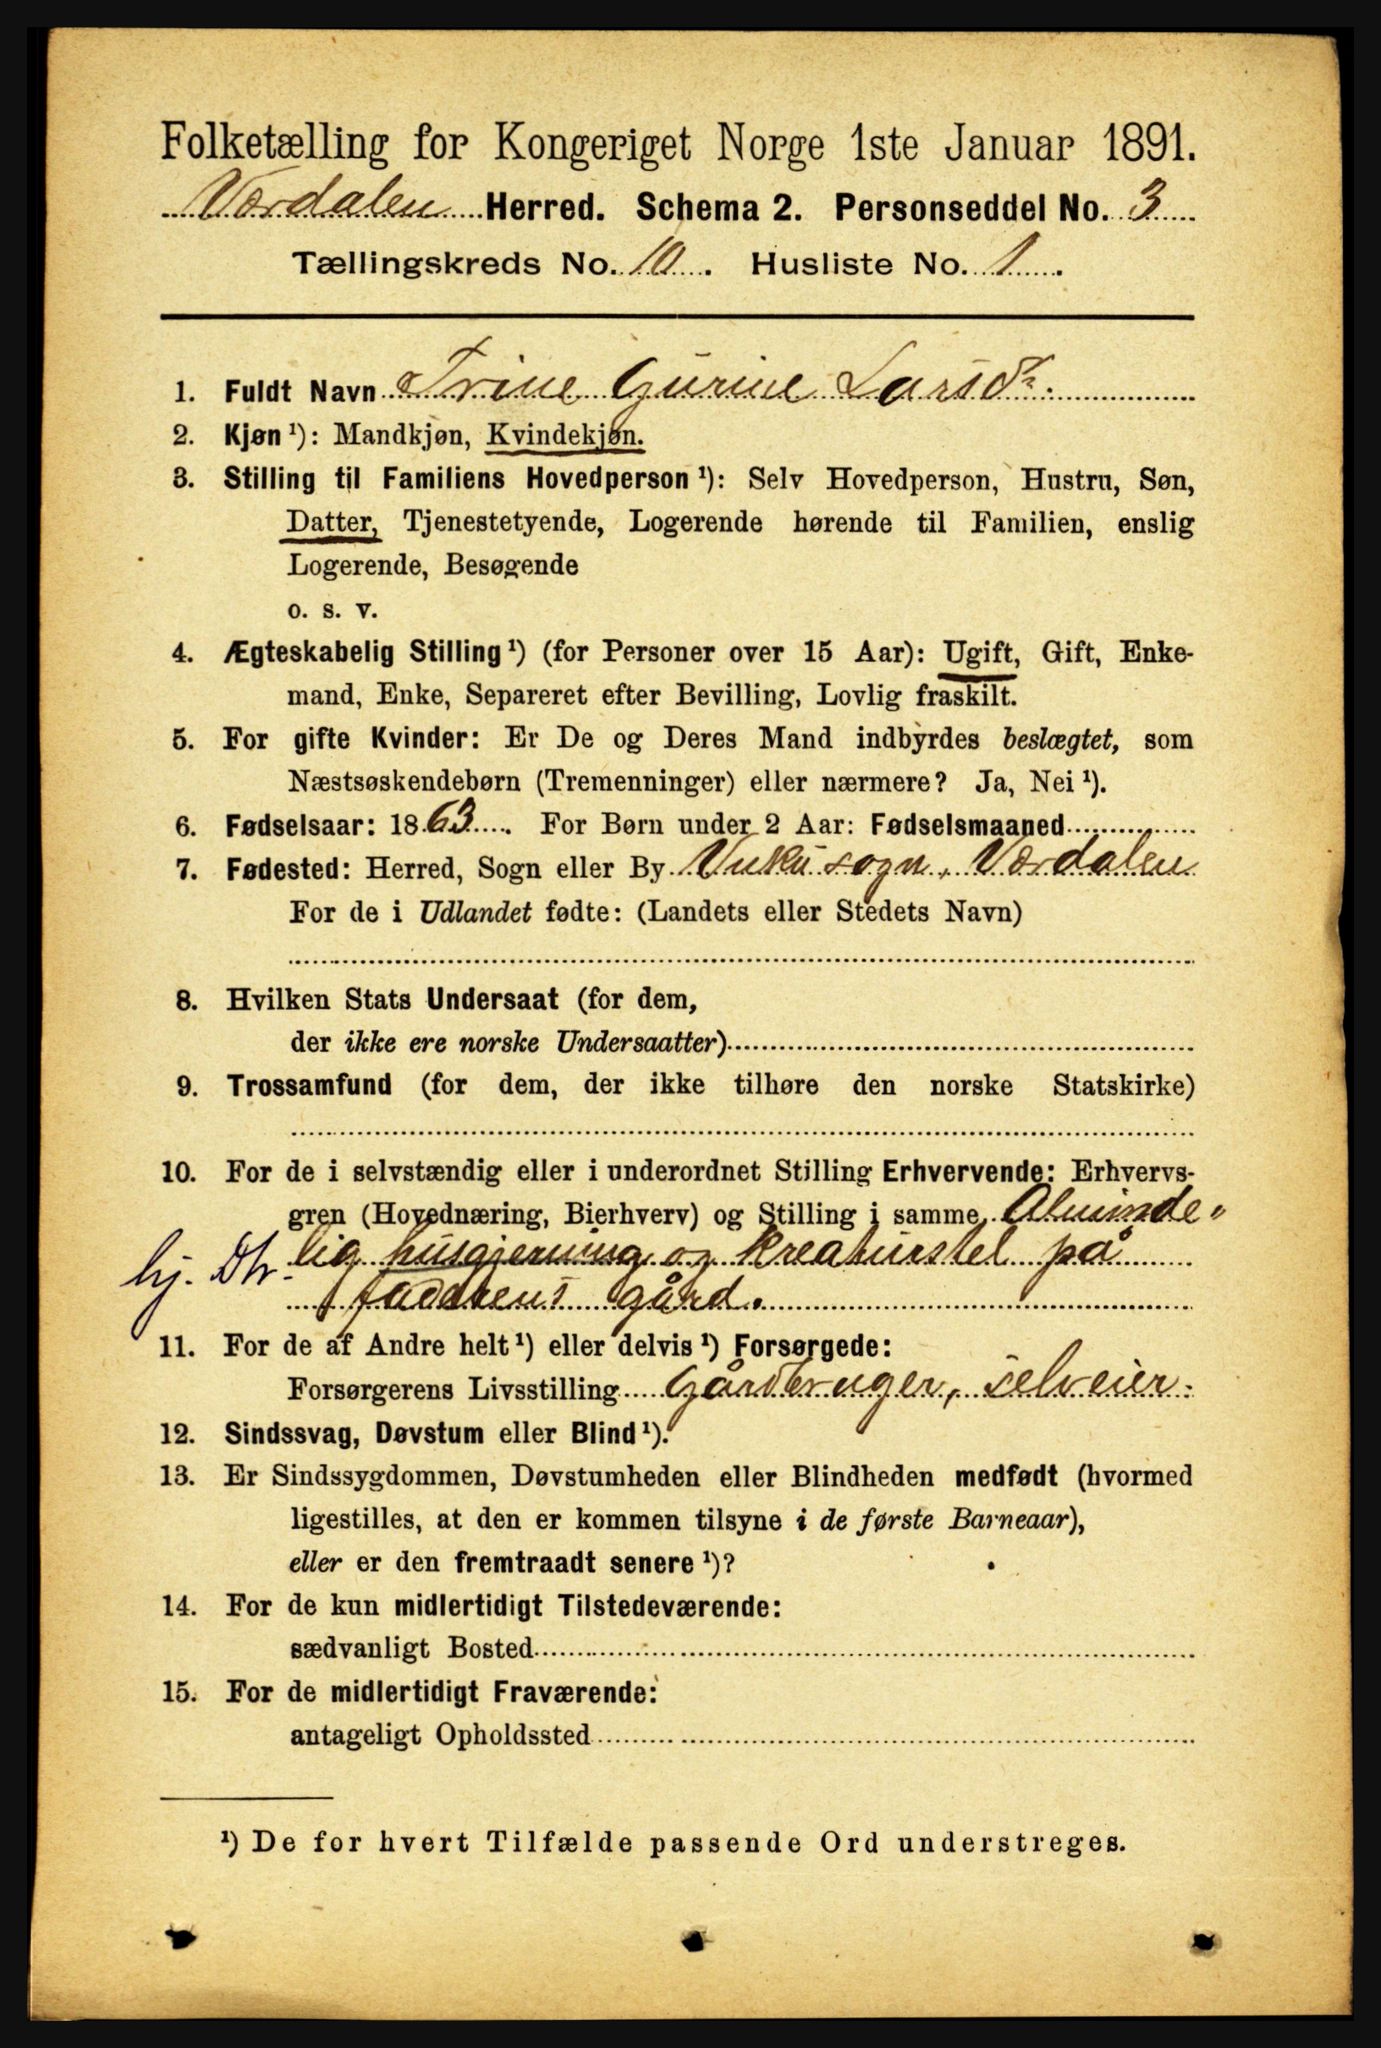 Folketælling for Kongeriget Norge 1ste Januar 1891.
Værdalen Herred. Schema 2. Personseddel No. 3
Tællingskreds No. 10. Husliste No. 1.
1. Fuldt Navn Trine Gurine Larsdr.
2. Kjøn ¹): Mandkjøn, Kvindekjøn.
3. Stilling til Familiens Hovedperson ¹): Selv Hovedperson, Hustru, Søn,
Datter, Tjenestetyende, Logerende hørende til Familien, enslig
Logerende, Besøgende
o. s. v.
4. Ægteskabelig Stilling ¹) (for Personer over 15 Aar): Ugift, Gift, Enke-
mand, Enke, Separeret efter Bevilling, Lovlig fraskilt.
5. For gifte Kvinder: Er De og Deres Mand indbyrdes beslægtet, som
Næstsøskendebørn (Tremenninger) eller nærmere? Ja, Nei ¹).
6. Fødselsaar: 1863. For Børn under 2 Aar: Fødselsmaaned
7. Fødested: Herred, Sogn eller By Vuku sogn, Værdalen
For de i Udlandet fødte: (Landets eller Stedets Navn)
8. Hvilken Stats Undersaat (for dem,
der ikke ere norske Undersaatter)
9. Trossamfund (for dem, der ikke tilhøre den norske Statskirke)
10. For de i selvstændig eller i underordnet Stilling Erhvervende: Erhvervs-
gren (Hovednæring, Bierhverv) og Stilling i samme Alminde-
hj. Dtr. lig husgjerning og kreaturstel på
fadrens gård.
11. For de af Andre helt ¹) eller delvis ¹) Forsørgede:
Forsørgerens Livsstilling Gårdbruger, selveier.
12. Sindssvag, Døvstum eller Blind ¹).
13. Er Sindssygdommen, Døvstumheden eller Blindheden medfødt (hvormed
ligestilles, at den er kommen tilsyne i de første Barneaar),
eller er den fremtraadt senere ¹)?
14. For de kun midlertidigt Tilstedeværende:
sædvanligt Bosted
15. For de midlertidigt Fraværende:
antageligt Opholdssted
¹) De for hvert Tilfælde passende Ord understreges.